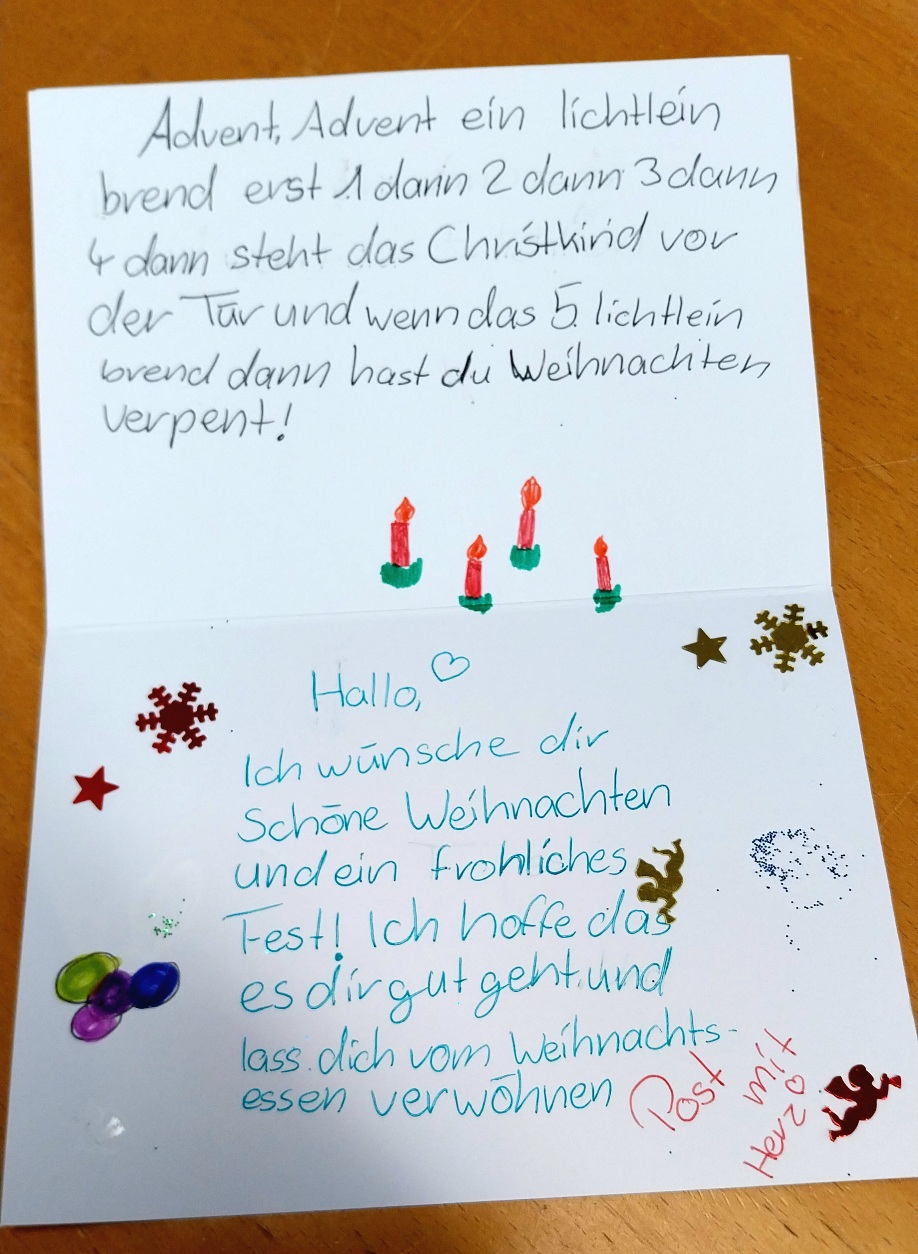 Advent, Advent ein lichtlein
brend erst 1 dann 2 dann 3 dann
4 dann steht das Christkind vor
der Tür und wenn das 5. lichtlein
brend dann hast du Weihnachten
verpent!
Hallo,
Ich wünsche dir
Schöne Weihnachten
und ein frohliches
Fest! Ich hoffe das
es dir gut geht und
lass dich vom Weihnachts-
essen verwöhnen
Post
mit
Herz